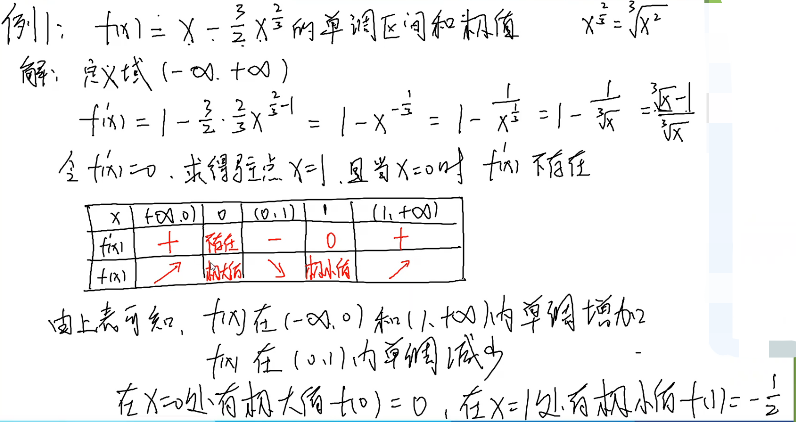 例11: f(x) = x - 3/2 x^{2/3} 的单调区间和极值 x^{2/3} = ∛x²
解: 定义域 (-∞, +∞)
f'(x) = 1 - 3/2 · 2/3 x^{2/3 - 1} = 1 - x^{-1/3} = 1 - 1/x^{1/3} = 1 - 1/∛x = (∛x - 1)/∛x
令 f'(x) = 0, 求得驻点 x=1, 且当 x=0时 f'(x) 不存在
x (-∞,0) 0 (0,1) 1 (1,+∞)
f'(x) + 不存在 - 0 +
f(x) ↗ 极大值 ↘ 极小值 ↗
由上表可知, f(x) 在 (-∞,0) 和 (1,+∞) 内单调增加
f(x) 在 (0,1) 内单调减少
在 x=0处有极大值 f(0) = 0, 在 x=1处有极小值 f(1) = -1/2